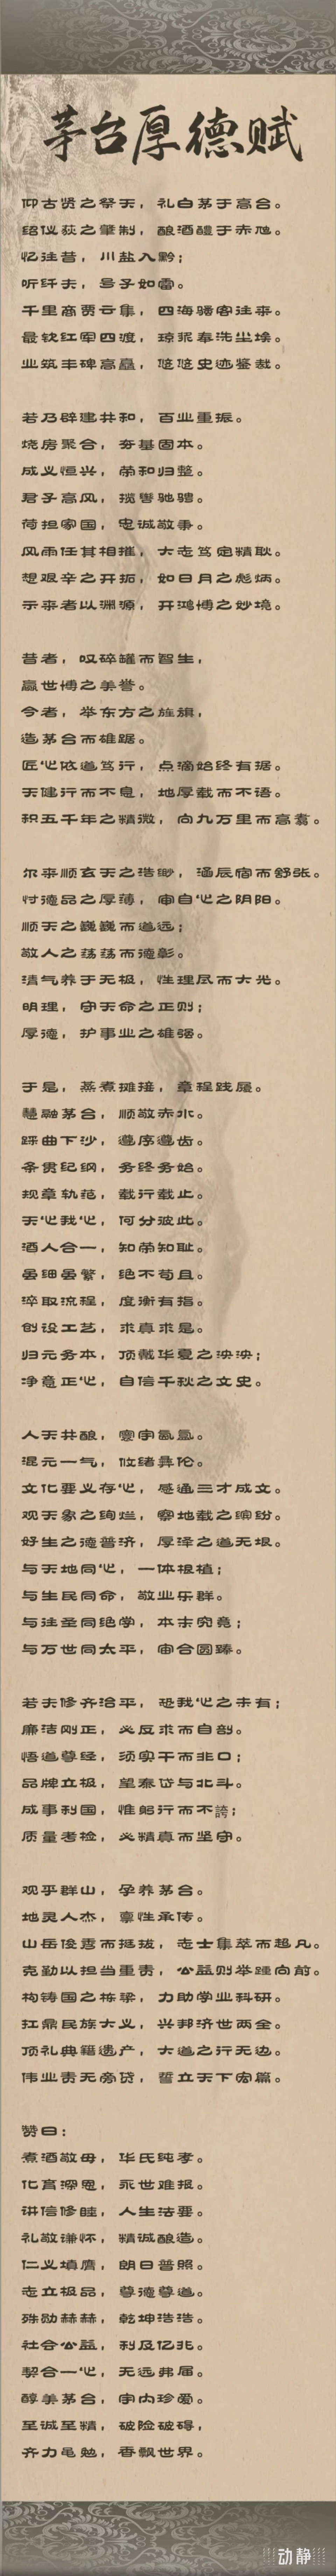 茅台厚德赋
仰古贤之祭天，礼白茅于高台。
绍仪荻之肇制，酿酒醴于赤虺。
忆往昔，川盐入黔；
听纤夫，号子如雷。
千里商贾云集，四海骚客往来。
最钦红军四渡，琼浆奉洗尘埃。
业筑丰碑高矗，悠悠史迹鉴裁。
若乃辟建共和，百业重振。
烧房聚合，夯基固本。
成义恒兴，荣和归整。
君子高风，揽辔驰骋。
荷担家国，忠诚敬事。
风雨任其相摧，大志笃定精耿。
想艰辛之开拓，如日月之彪炳。
示来者以渊源，开鸿博之妙境。
昔者，叹碎罐而智生，
赢世博之美誉。
今者，举东方之旌旗，
造茅台而雄踞。
匠心依道笃行，点滴始终有据。
天健行而不息，地厚载而不语。
积五千年之精微，向九万里而高翥。
尔来顺玄天之浩缈，通辰宿而舒张。
忖德品之厚薄，审自心之阴阳。
顺天之巍巍而道远；
敬人之荡荡而德彰。
清气养于无极，性理尽而大光。
明理，守天命之正则；
厚德，护事业之雄强。
于是，蒸煮摊接，章程践履。
慧融茅台，顺敬赤水。
踩曲下沙，遵序遵齿。
条贯纪纲，务终务始。
规章轨范，载行载止。
天心我心，何分彼此。
酒人合一，知荣知耻。
虽细虽繁，绝不苟且。
淬取流程，度衡有指。
创设工艺，求真求是。
归元务本，顶戴华夏之泱泱；
净意正心，自信千秋之文史。
人天共酿，寰宇氤氲。
混元一气，攸绪彝伦。
文化要义存心，感通三才成文。
观天象之绚烂，察地载之缤纷。
好生之德普济，厚泽之道无垠。
与天地同心，一体根植；
与生民同命，敬业乐群。
与往圣同绝学，本末究竟；
与万世同太平，审合圆臻。
若夫修齐治平，恐我心之未有；
廉洁刚正，必反求而自剖。
悟道尊经，须实干而非口；
品牌立极，望泰岱与北斗。
成事利国，惟躬行而不誇；
质量考检，必精真而坚守。
观乎群山，孕养茅台。
地灵人杰，禀性承传。
山岳俊秀而挺拔，志士集萃而超凡。
克勤以担当重责，公益则举踵向前。
构铸国之栋梁，力助学业科研。
扛鼎民族大义，兴邦济世两全。
顶礼典籍遗产，大道之行无边。
伟业责无旁贷，誓立天下宏篇。
赞曰：
煮酒敬母，华氏纯孝。
化育深恩，永世难报。
讲信修睦，人生法要。
礼敬谦怀，精诚酿造。
仁义填膺，朗日普照。
志立极品，尊德尊道。
殊勋赫赫，乾坤浩浩。
社会公益，利及亿兆。
契合一心，无远弗届。
醇美茅台，宇内珍爱。
至诚至精，破险破碍，
齐力黾勉，香飘世界。
动静